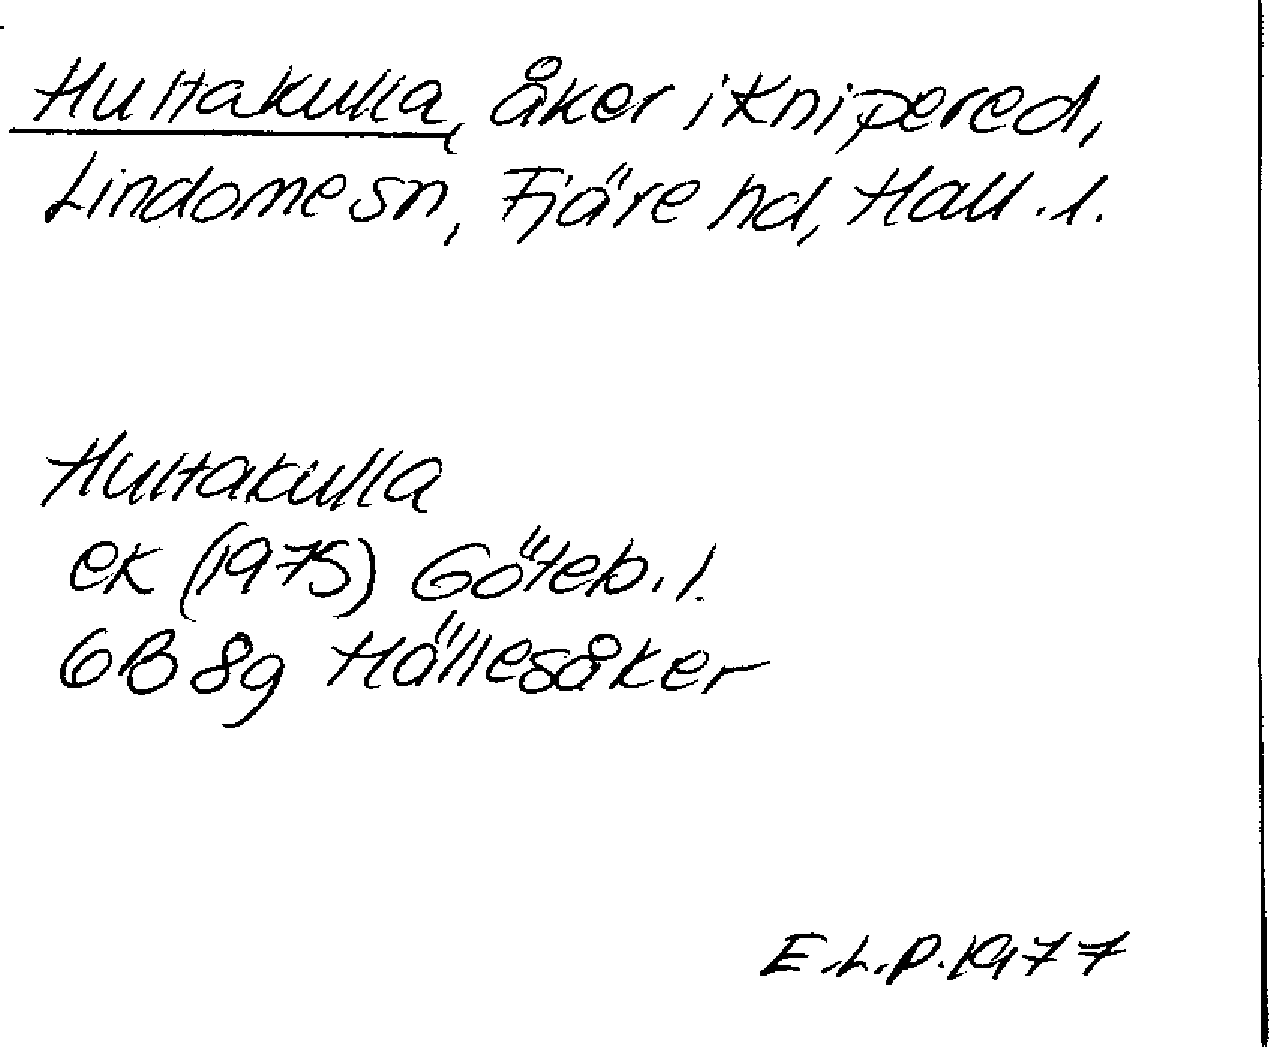 Hultakulla, åker i Knipered,
Lindome sn, Fjäre hd, Hall. l.
Hultakulla
ek (1975) Göteb. l.
6B 8g Hällesåker
E.L.P. 1977